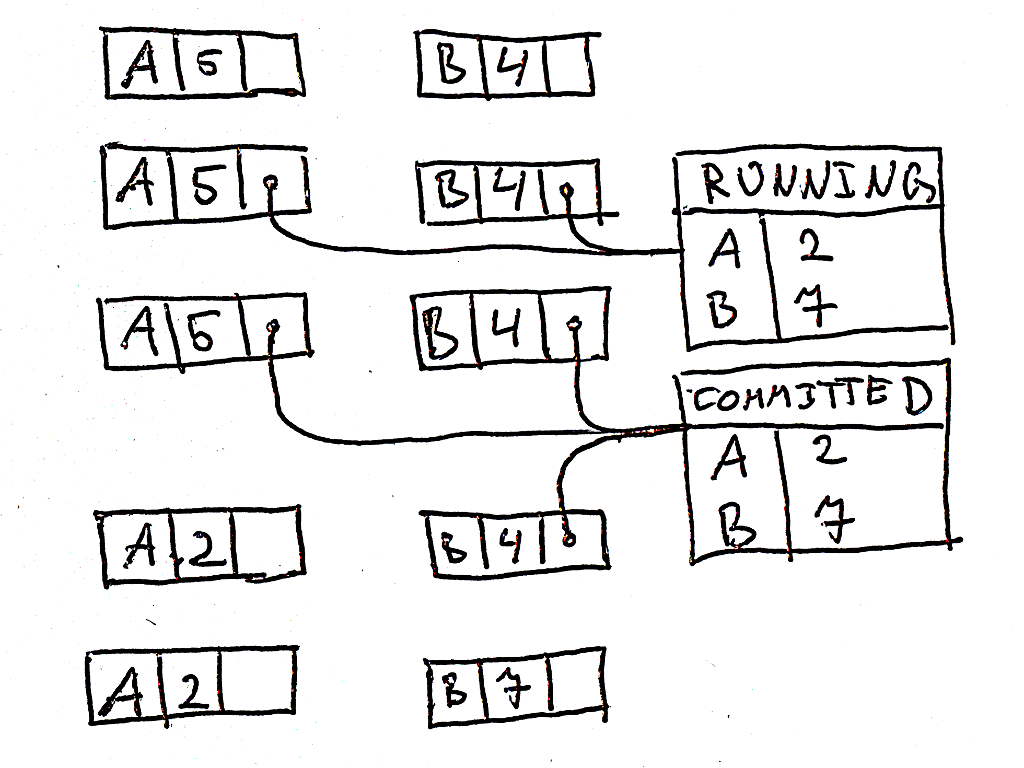 A 5 B 4
A 5 B 4
RUNNING
A 2
B 7
A 5 B 4
COMMITTED
A 2
B 7
A 2 B 4
A 2 B 7